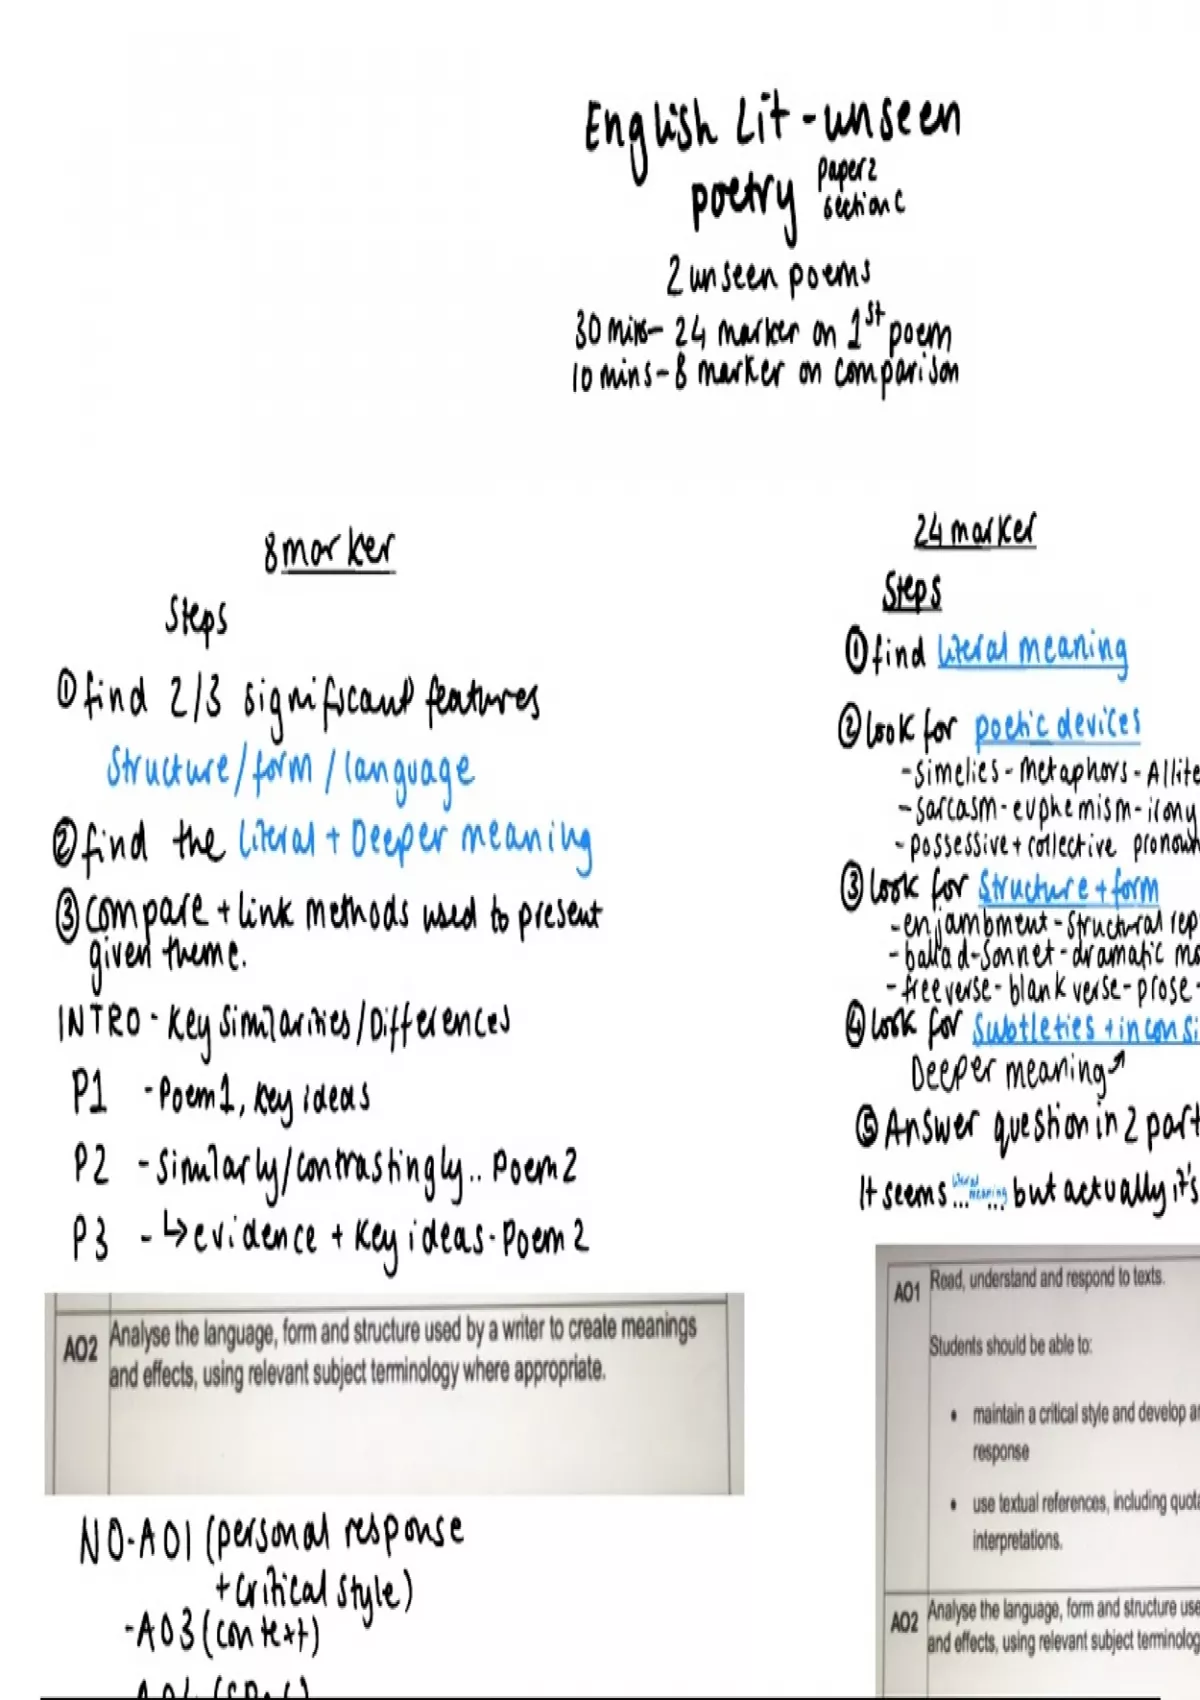 English Lit - unseen
poetry paper 2
section C
2 unseen poems
30 mins - 24 marker on 1st poem
10 mins - 8 marker on comparison
8 marker
Steps
① find 2/3 significant features
Structure / form / language
② find the literal + Deeper meaning
③ compare + link methods used to present
given theme.
INTRO - Key Similarities / Differences
P1 - Poem 1, key ideas
P2 - Similarly / contrastingly .. Poem 2
P3 - ↳ evidence + key ideas - Poem 2
AO2 Analyse the language, form and structure used by a writer to create meanings
and effects, using relevant subject terminology where appropriate.
NO - AO1 (personal response
+ critical style)
- AO3 (context)
24 marker
Steps
① find literal meaning
② look for poetic devices
- simelies - metaphors - Allite
- sarcasm - euphemism - irony
- possessive + collective pronoun
③ look for structure + form
- enjambment - structural rep
- ballad - sonnet - dramatic mo
- free verse - blank verse - prose -
④ look for subtleties + inconsi
Deeper meaning ↗
⑤ Answer question in 2 part
It seems ... literal meaning ... but actually it's
AO1 Read, understand and respond to texts.
Students should be able to:
• maintain a critical style and develop an
response
• use textual references, including quota
interpretations.
AO2 Analyse the language, form and structure use
and effects, using relevant subject terminolog